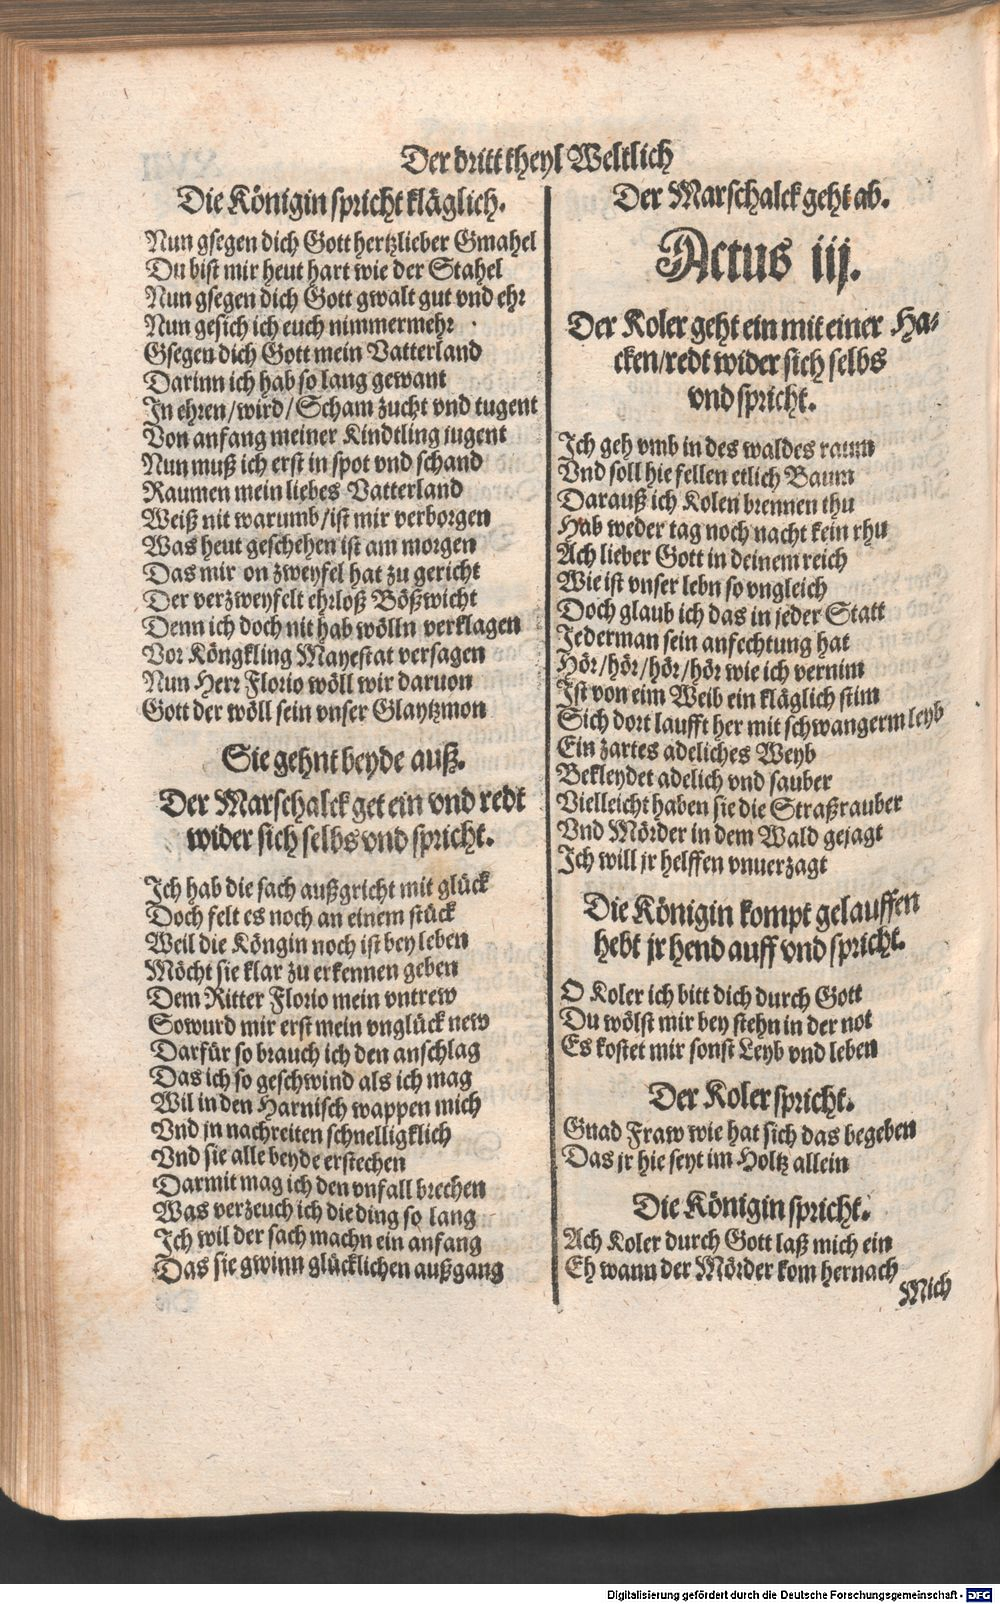 Der dritt theyl Weltlich
Die Königin spricht kläglich.
Nun gsegen dich Gott hertzlieber Gmahel
Du bist mir heut hart wie der Stahel
Nun gsegen dich Gott gwalt gut vnd ehr
Nun gesich ich euch nimmermehr
Gsegen dich Gott mein Vatterland
Darinn ich hab so lang gewant
In ehren/wird/Scham zucht vnd tugent
Von anfang meiner Kindtling jugent
Nun muß ich erst in spot vnd schand
Raumen mein liebes Vatterland
Weiß nit warumb/ist mir verborgen
Was heut geschehen ist am morgen
Das mir on zweyfel hat zu gericht
Der verzweyfelt ehrloß Bößwicht
Denn ich doch nit hab wölln verklagen
Vor Köngkling Mayestat versagen
Nun Herr Florio wöll wir daruon
Gott der wöll sein vnser Glaytzmon
Sie gehnt beyde auß.
Der Marschalck get ein vnd redt
wider sich selbs vnd spricht.
Ich hab die sach außgricht mit glück
Doch felt es noch an einem stück
Weil die Köngin noch ist bey leben
Möcht sie klar zu erkennen geben
Dem Ritter Florio mein vntrew
So wurd mir erst mein vnglück new
Darfür so brauch ich den anschlag
Das ich so geschwind als ich mag
Wil in den Harnisch wappen mich
Vnd jn nachreiten schnelligklich
Vnd sie alle beyde erstechen
Darmit mag ich den vnfall brechen
Was verzeuch ich die ding so lang
Ich wil der sach machn ein anfang
Das sie gwinn glücklichen außgang
Der Marschalck geht ab.
Actus iij.
Der Koler geht ein mit einer Ha-
cken/redt wider sich selbs
vnd spricht.
Ich geh vmb in des waldes raum
Vnd soll hie fellen etlich Baum
Darauß ich Kolen brennen thu
Hab weder tag noch nacht kein rhu
Ach lieber Gott in deinem reich
Wie ist vnser lebn so vngleich
Doch glaub ich das in jeder Statt
Jederman sein anfechtung hat
Hör/hör/hör/hör wie ich vernim
Ist von eim Weib ein kläglich stim
Sich dort laufft her mit schwangerm leyb
Ein zartes adeliches Weyb
Bekleydet adelich vnd sauber
Vielleicht haben sie die Straßrauber
Vnd Mörder in dem Wald gejagt
Ich will jr helffen vnuerzagt
Die Königin kompt gelauffen
hebt jr hend auff vnd spricht.
O Koler ich bitt dich durch Gott
Du wölst mir bey stehn in der not
Es kostet mir sonst Leyb vnd leben
Der Koler spricht.
Gnad Fraw wie hat sich das begeben
Das jr hie seyt im Holtz allein
Die Königin spricht.
Ach Koler durch Gott laß mich ein
Eh wann der Mörder kom hernach
Mich
Digitalisierung gefördert durch die Deutsche Forschungsgemeinschaft - DFG